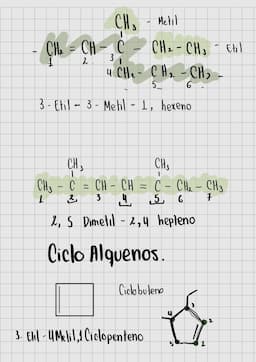 CH₃ - Metil
- CH₂ = CH - C - CH₂ - CH₃ - Etil
1 2 3
4 CH₂ - CH₂ - CH₃ -
5 6
3 - Etil - 3 - Metil - 1, hexeno
CH₃ CH₃
CH₃ - C = CH - CH = C - CH₂ - CH₃
1 2 3 4 5 6 7
2, 5 Dimetil - 2,4 hepteno
Ciclo Alquenos.
Ciclobuteno
3 2
4
5 1
3 - Etil - 4 Metil, 1 Ciclopenteno